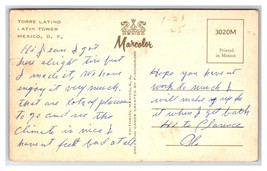 TORRE LATINO
LATIN TOWER
MEXICO, D. F.
MEXICO
Marcolor
3020M
Printed
in Mexico
Hi Jean I got
here alright tire but
I made it. We have
enjoy it very much.
That are lots of places
to go and see the
climate is nice I
have not felt bad at all
Hope you have not
work to much I
will make up to
it when I get back
to Clarence